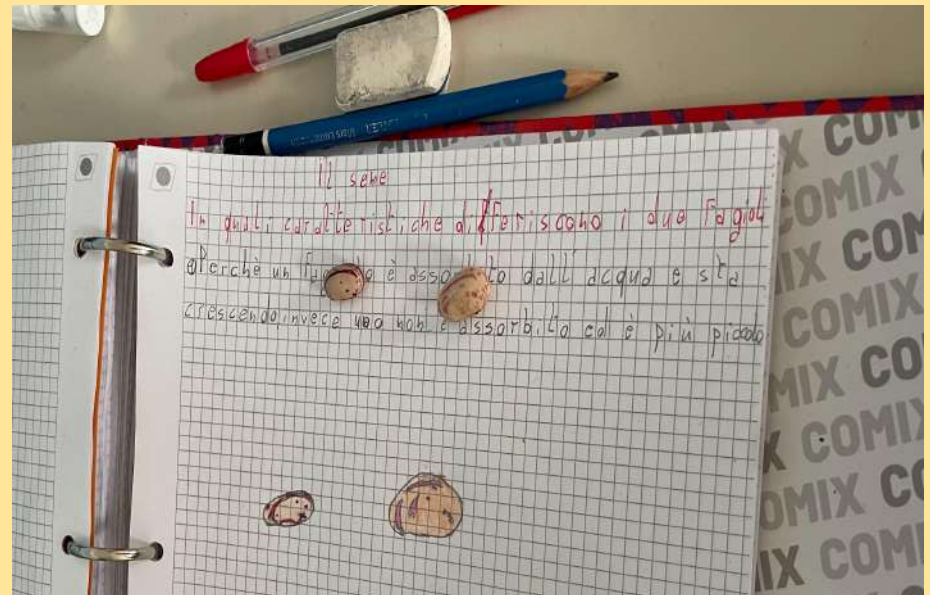 Il seme
In quali caratteristiche differiscono i due fagioli
Perchè un è dall'acqua e sta
crescendo, invece uno non è assorbito ed è più piccolo
COMIX COMIX COMIX COMIX